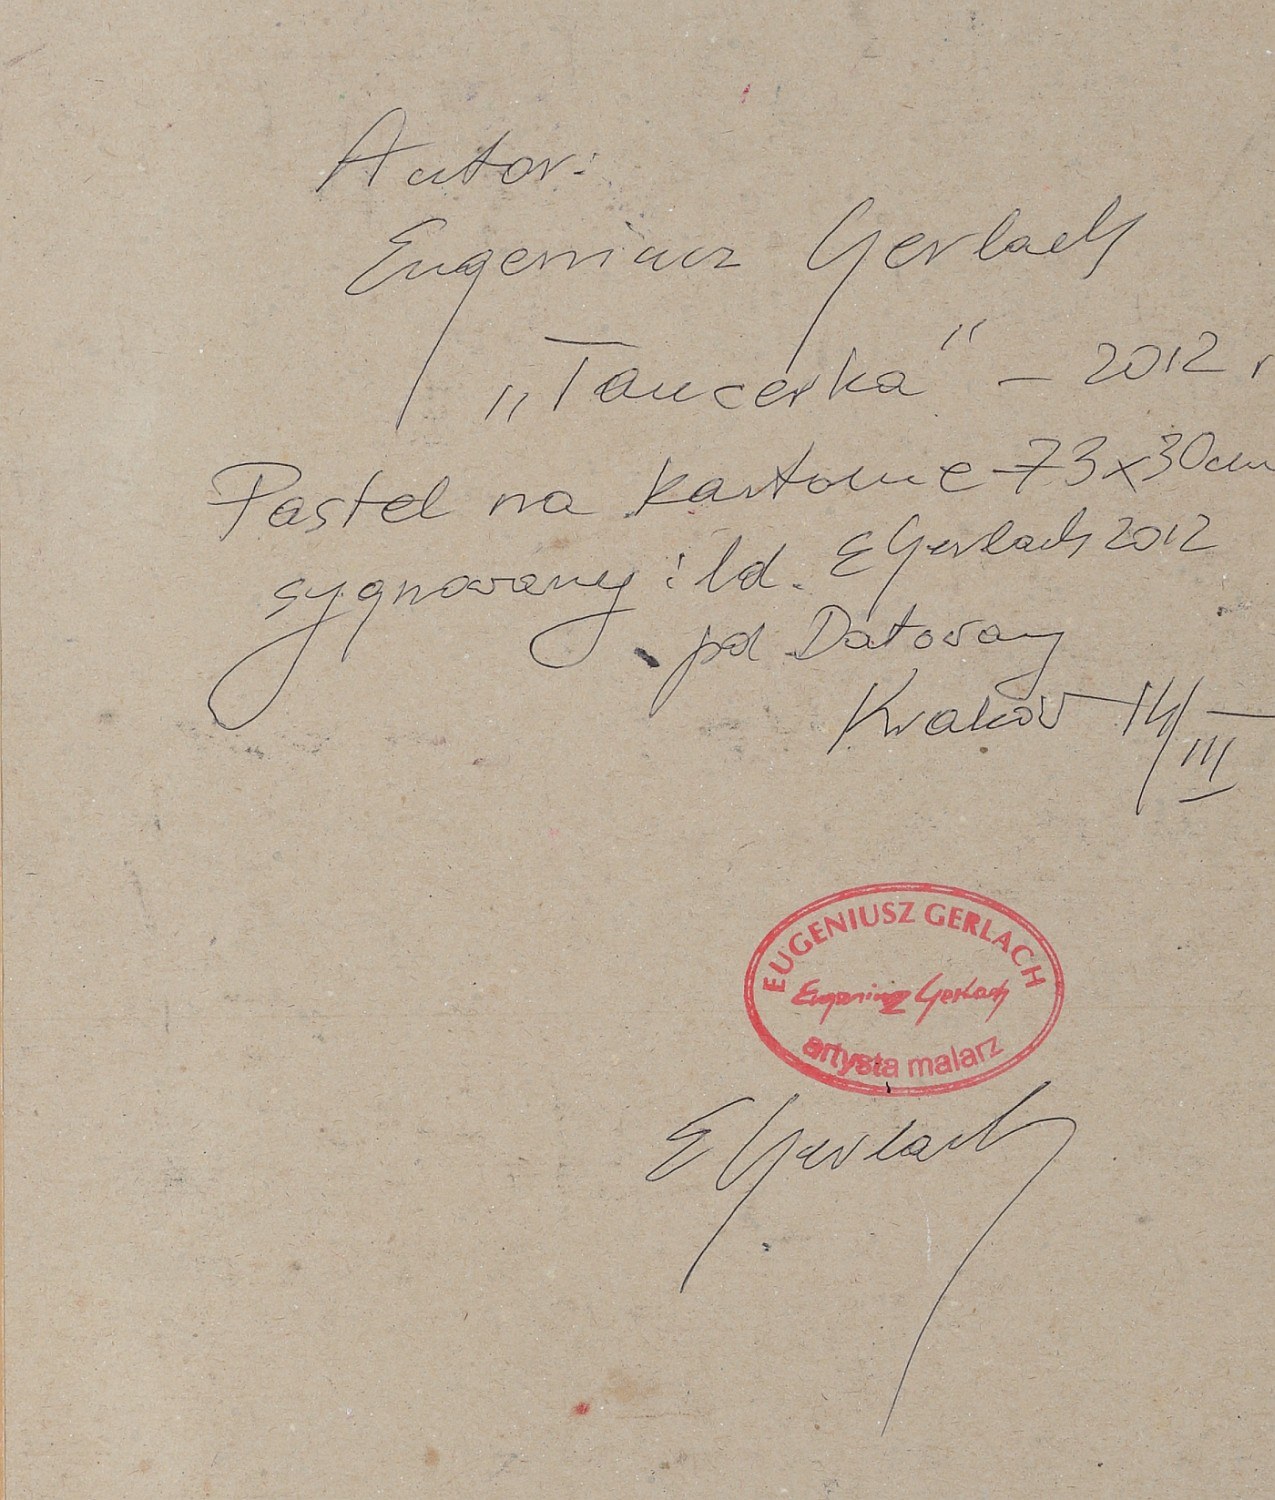 Autor:
Eugeniusz Gerlach
„Tancerka" – 2012 r
Pastel na kartonie – 73x30cm
sygnowany : ld. EGerlach 2012
pd Datowany
Kraków 14/III –
EUGENIUSZ GERLACH
Eugeniusz Gerlach
artysta malarz
EGerlach